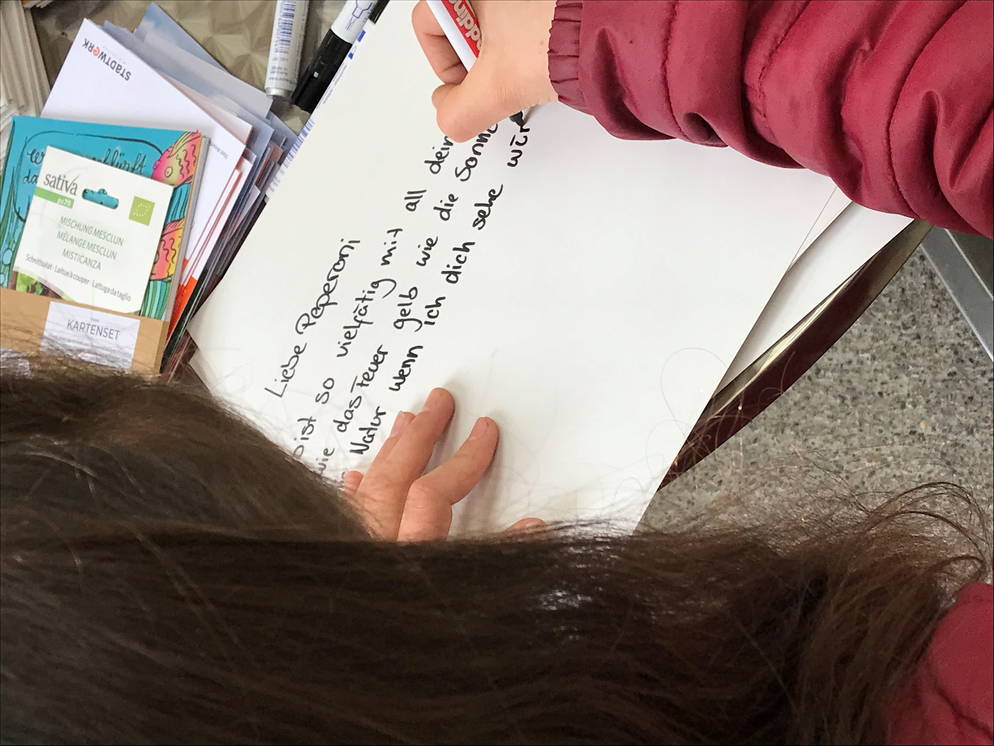 STADTWERK
sativa
MISCHUNG MESCLUN
MÉLANGE MESCLUN
MISTICANZA
Schnittsalat · Laitue à couper · Lattuga da taglio
KARTENSET
edding
Liebe Peperoni
bist so vielfätig mit all dein
wie das Feuer gelb wie die Sonne
Natur wenn ich dich sehe wür